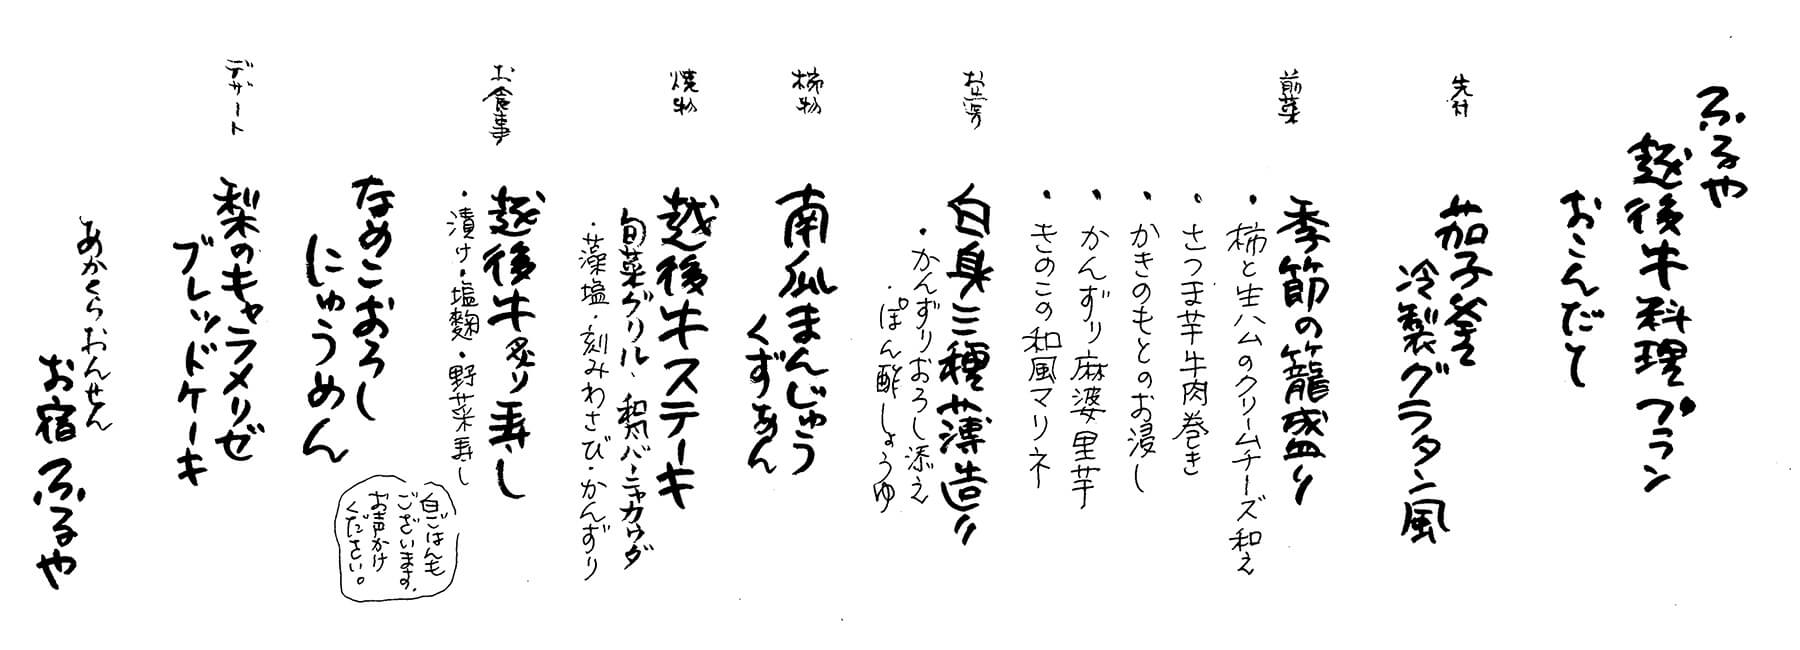 ふるや
越後牛料理プラン
おこんだて
先付
茄子釜
冷製グラタン風
前菜
季節の籠盛り
・柿と生ハムのクリームチーズ和え
・さつま芋牛肉巻き
・かきのもとのお浸し
・かんずり麻婆里芋
・きのこの和風マリネ
お造り
白身三種薄造り
・かんずりおろし添え
・ぽん酢しょうゆ
柿物
南瓜まんじゅう
くずあん
焼物
越後牛ステーキ
旬菜グリル、和風バーニャカウダ
・藻塩・刻みわさび・かんずり
お食事
越後牛炙り寿し
・漬け・塩麴・野菜寿し
なめこおろし
にゅうめん
白ごはんも
ございます。
お声かけ
ください。
デザート
梨のキャラメリゼ
ブレッドケーキ
あかくらおんせん
お宿ふるや